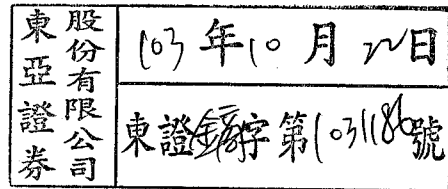 東亞證券
股份有限公司
103年10月22日
東證鏑字第1031186號